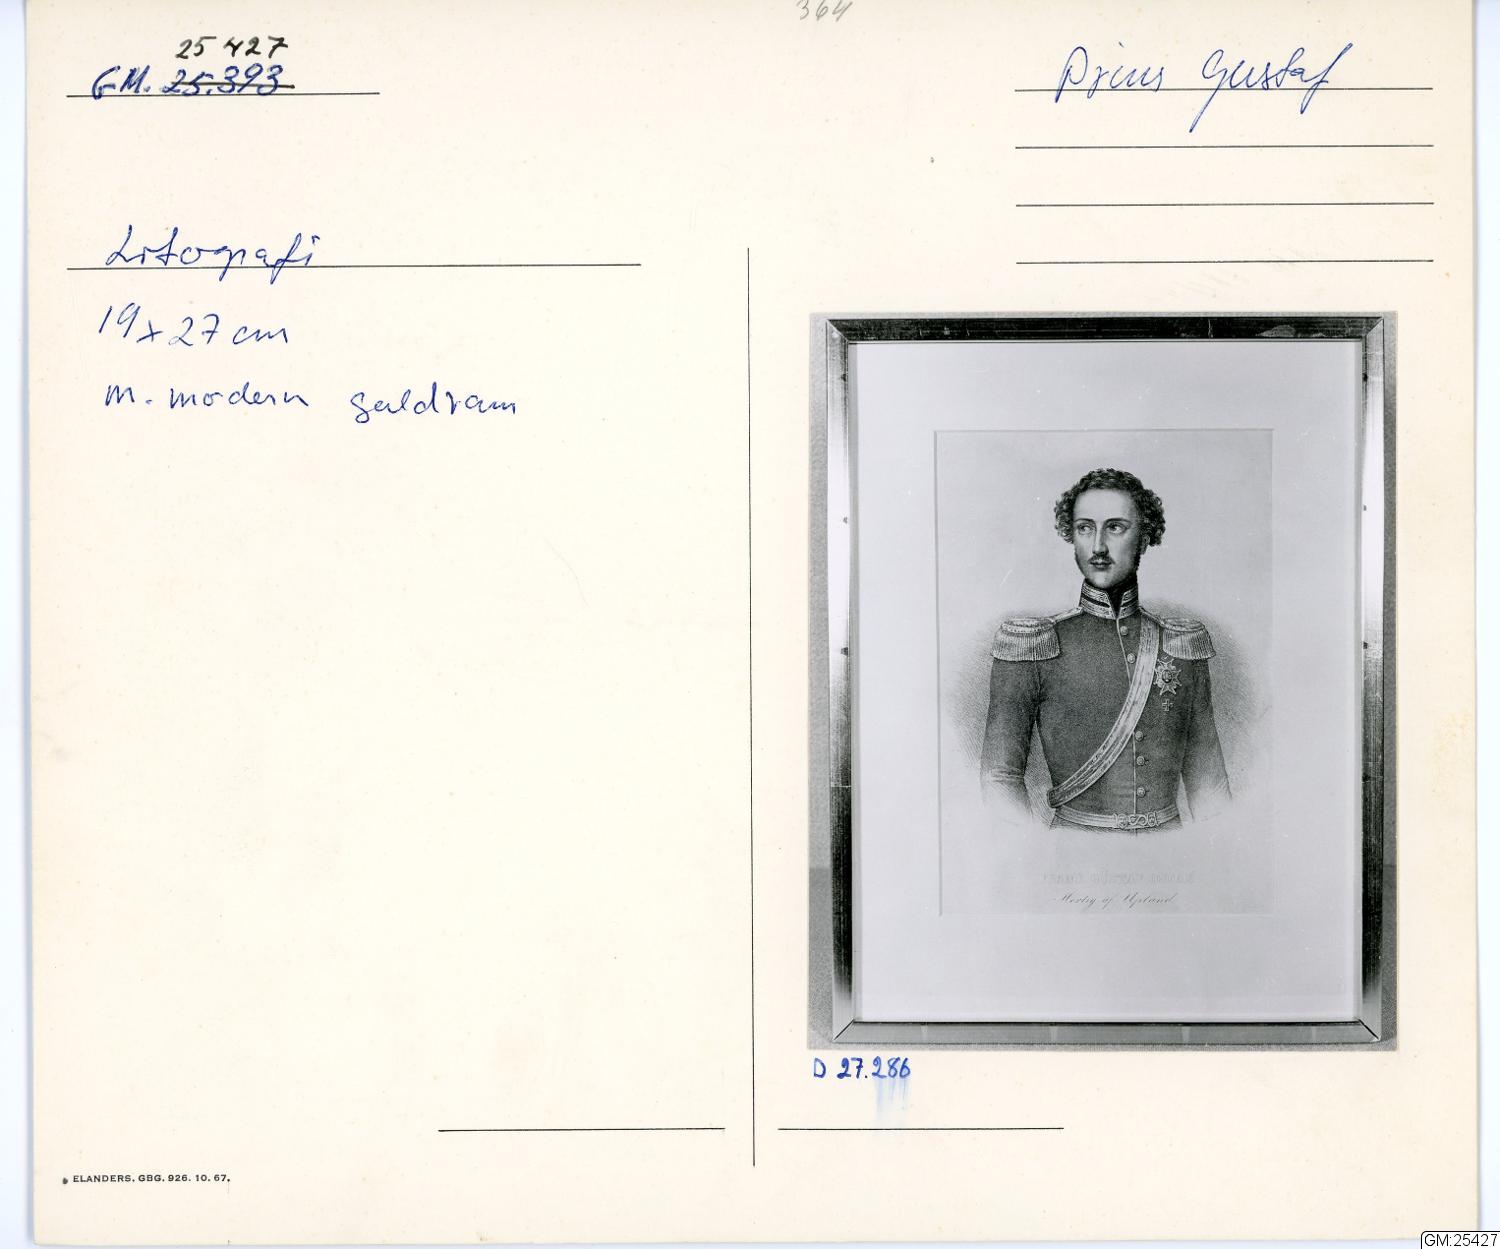 364
25 427
GM. 25.393
Prins Gustaf
Litografi
19 x 27 cm
m. modern guldram
FRANS GUSTAF OSCAR
Hertig af Upland
D 27.286
ELANDERS. GBG. 926. 10. 67.
GM:25427